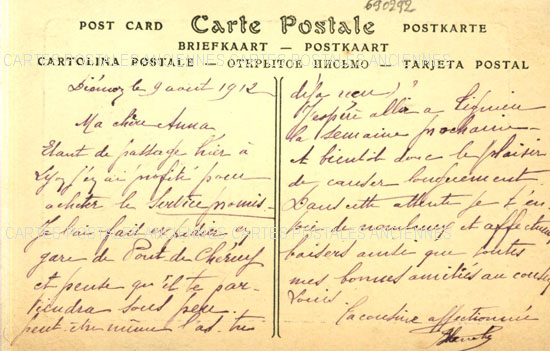 690292
POST CARD Carte Postale POSTKARTE
BRIEFKAART — POSTKAART
CARTOLINA POSTALE — ОТКРЫТОЕ ПИСЬМО — TARJETA POSTAL
CARTES POSTALES ANCIENNES
le 9 août 1912
Ma chère Anna
Etant de passage hier à
j'en ai profité pour
acheter le Service promis
Je l'ai fait expédier en
gare de Pont de Chéruy
et pense qu'il te par-
viendra sous peu
peut-être même l'as tu
déjà reçu ?
J'espère aller à
la semaine prochaine
A bientôt donc le plaisir
de causer longuement
Dans cette attente je t'en-
de nombreux et affectueux
baisers ainsi que toutes
mes bonnes amitiés au cousin
Louis
Ta cousine affectionnée